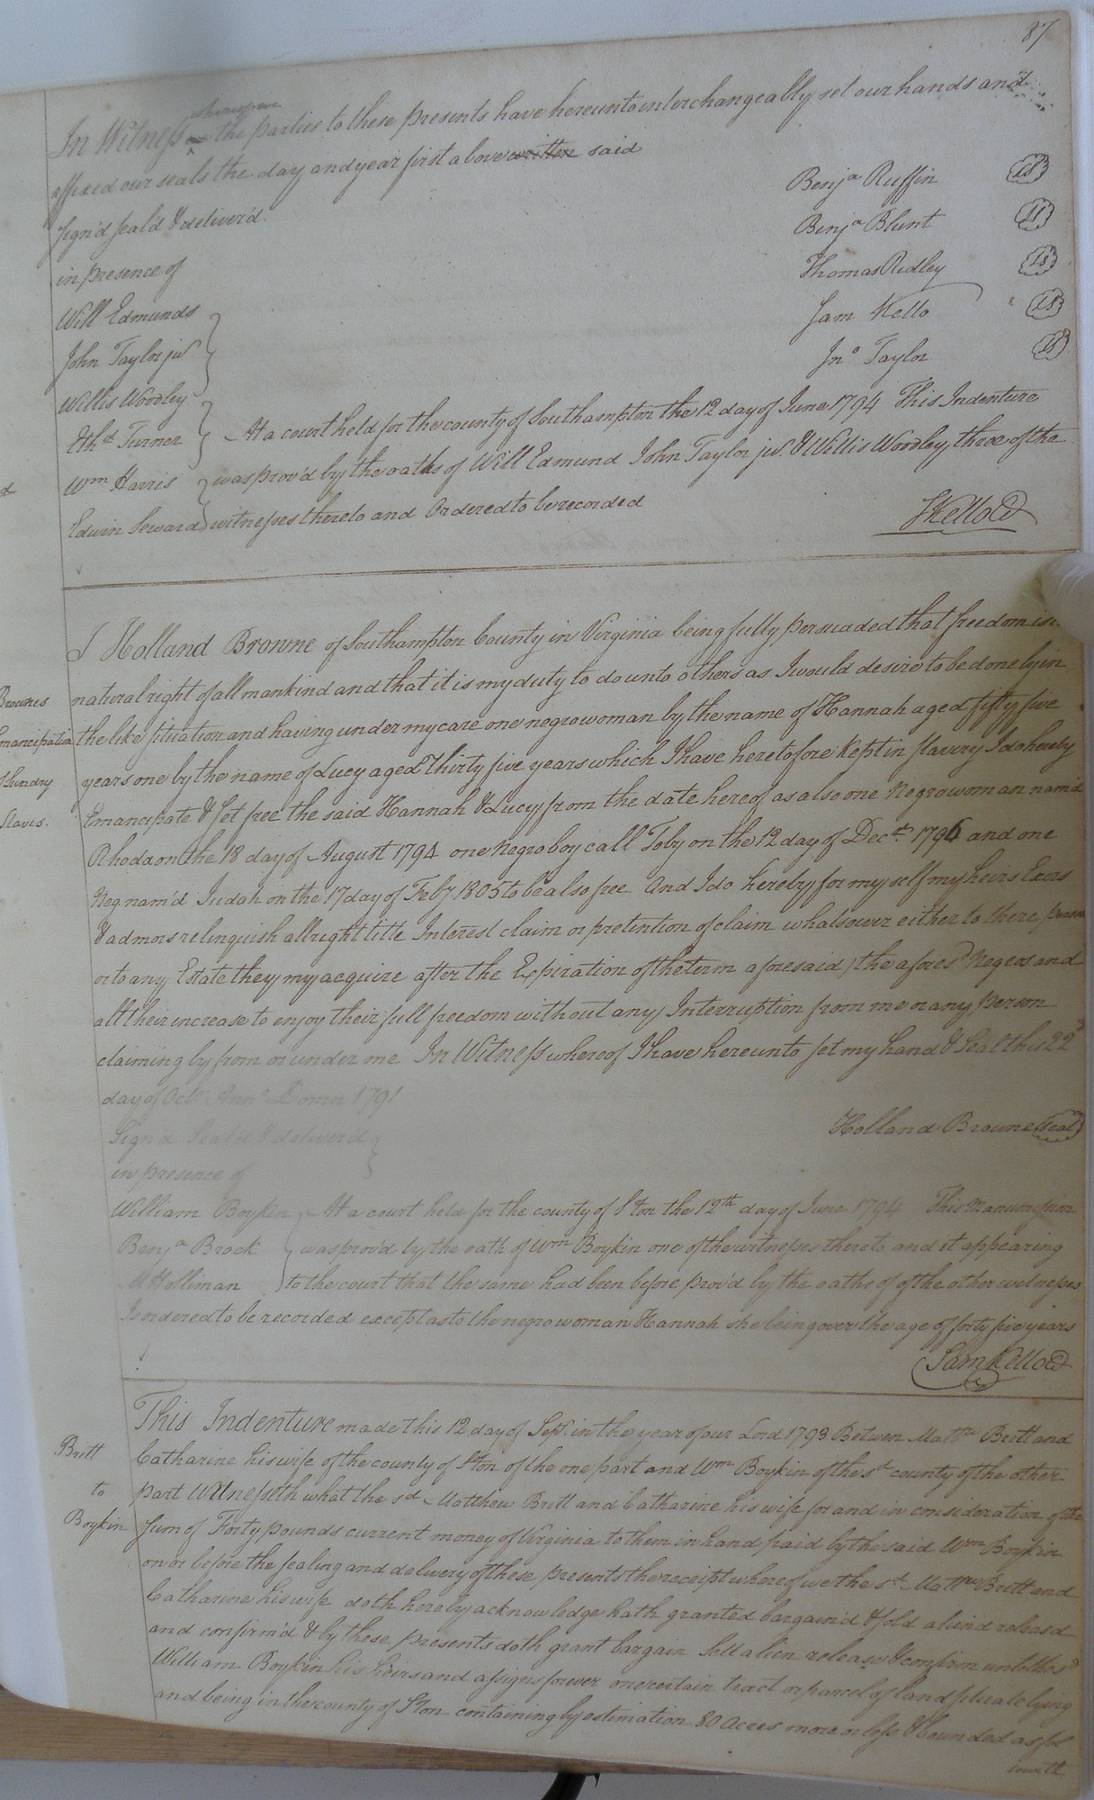 87
wheregan
In Witness the parties to these presents have hereunto interchangeably set our hands and
affixed our seals the day and year first above written said
Sign'd Seal'd & deliver'd.
in presence of
Benja Ruffin LS
Benja Blunt LS
Thomas Ridley LS
Sam Kello LS
Jno Taylor LS
Will Edmunds
John Taylor junr
Willis Woodley
Ethd Turner
Wm Harris
Edwin Seward
At a court held for the county of Southampton the 12 day of June 1794 This Indenture
was prov'd by the oaths of Will Edmund John Taylor junr. & Willis Woodley three of the
witnesses thereto and Ordered to be recorded
SKelloCC
Brownes
Emancipation
Sundry
Slaves.
I Holland Browne of Southampton County in Virginia being fully persuaded that freedom is
natural right of all mankind and that it is my duty to do unto others as I would desire to be done by in
the like situation and having under my care one negro woman by the name of Hannah aged fifty five
years one by the name of Lucy aged thirty five years which I have heretofore kept in slavery I do hereby
Emancipate & Set free the said Hannah & Lucy from the date hereof as also one Negro woman nam'd
Rhoda on the 18 day of August 1794 one negro boy call Toby on the 12 day of Decr. 1796 and one
Neg nam'd Judah on the 17 day of Feby 1805 to be also free And I do hereby for my self my heirs Exors
& admors relinquish all right title Interest claim or pretention of claim whatsower either to there person
or to any Estate they my acquire after the Expiration of the term aforesaid) the aforesd Negers and
all their increase to enjoy their full freedom without any Interruption from me or any person
claiming by from or under me In Witness whereof I have hereunto set my hand & Seal this 22d
day of Octr Anno Domn 1791
Holland Browne Seal
Sign'd Seal'd & deliver'd
in presence of
William Boykin
Benja Brock
Holliman
At a court held for the county of Ston the 12th day of June 1794 This Manumision
was prov'd by the oath of Wm Boykin one of the witnesses thereto and it appearing
to the court that the same had been before prov'd by the oaths of of the other witnesses
Is ordered to be recorded except as to the negro woman Hannah she being over the age of forty five years
Sam KelloCC
Britt
to
Boykin
This Indenture made this 12 day of Sept. in the year of our Lord 1793 Between Mattw Britt and
Catharine his wife of the county of Ston of the one part and Wm Boykin of the sd county of the other
part Witnesseth what the sd Matthew Britt and Catharine his wife for and in consideration of the
sum of Forty pounds current money of Virginia to them in hand paid by the said Wm Boykin
on or before the sealing and delivery of these presents the receipt whereof we the sd Mattw Britt and
Catharine his wife doth hereby acknowledge hath granted bargain'd & sold aliend releasd
and confirm'd & by these presents doth grant bargain sell alien release & confirm unto the sd
William Boykin his heirs and assigns forever one certain tract or parcel of land situate lying
and being in the county of Ston containing by estimation 80 Acres more or less & bounded as fol
loweth